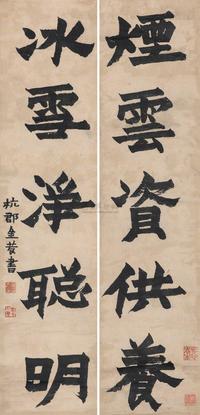 煙雲資供養
冰雪淨聰明
杭郡金農書